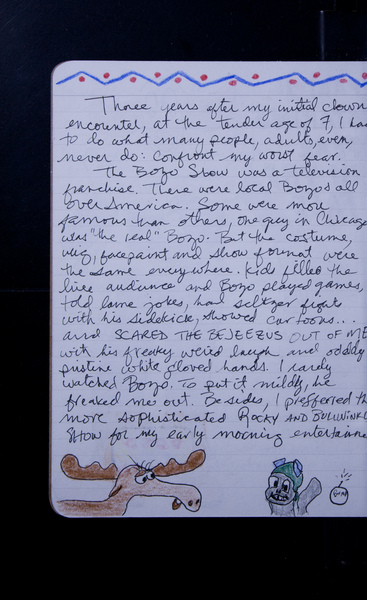 Three years after my initial clown
encounter, at the tender age of 7, I had
to do what many people, adults, even,
never do: Confront my worst fear.
The Bozo Show was a television
franchise. There were local Bozos all
over America. Some were more
famous than others, one guy in Chicago
was "the real" Bozo. But the costume,
wig, facepaint and show format were
the same everywhere. Kids filled the
live audience and Bozo played games,
told lame jokes, had seltzer fights
with his sidekick, showed cartoons...
and SCARED THE BEJEEZUS OUT OF ME
with his freaky weird laugh and oddly
pristine white gloved hands. I rarely
watched Bozo. To put it mildly, he
freaked me out. Besides, I prefferred th
more sophisticated ROCKY AND BULLWINKL
SHOW for my early morning entertainme